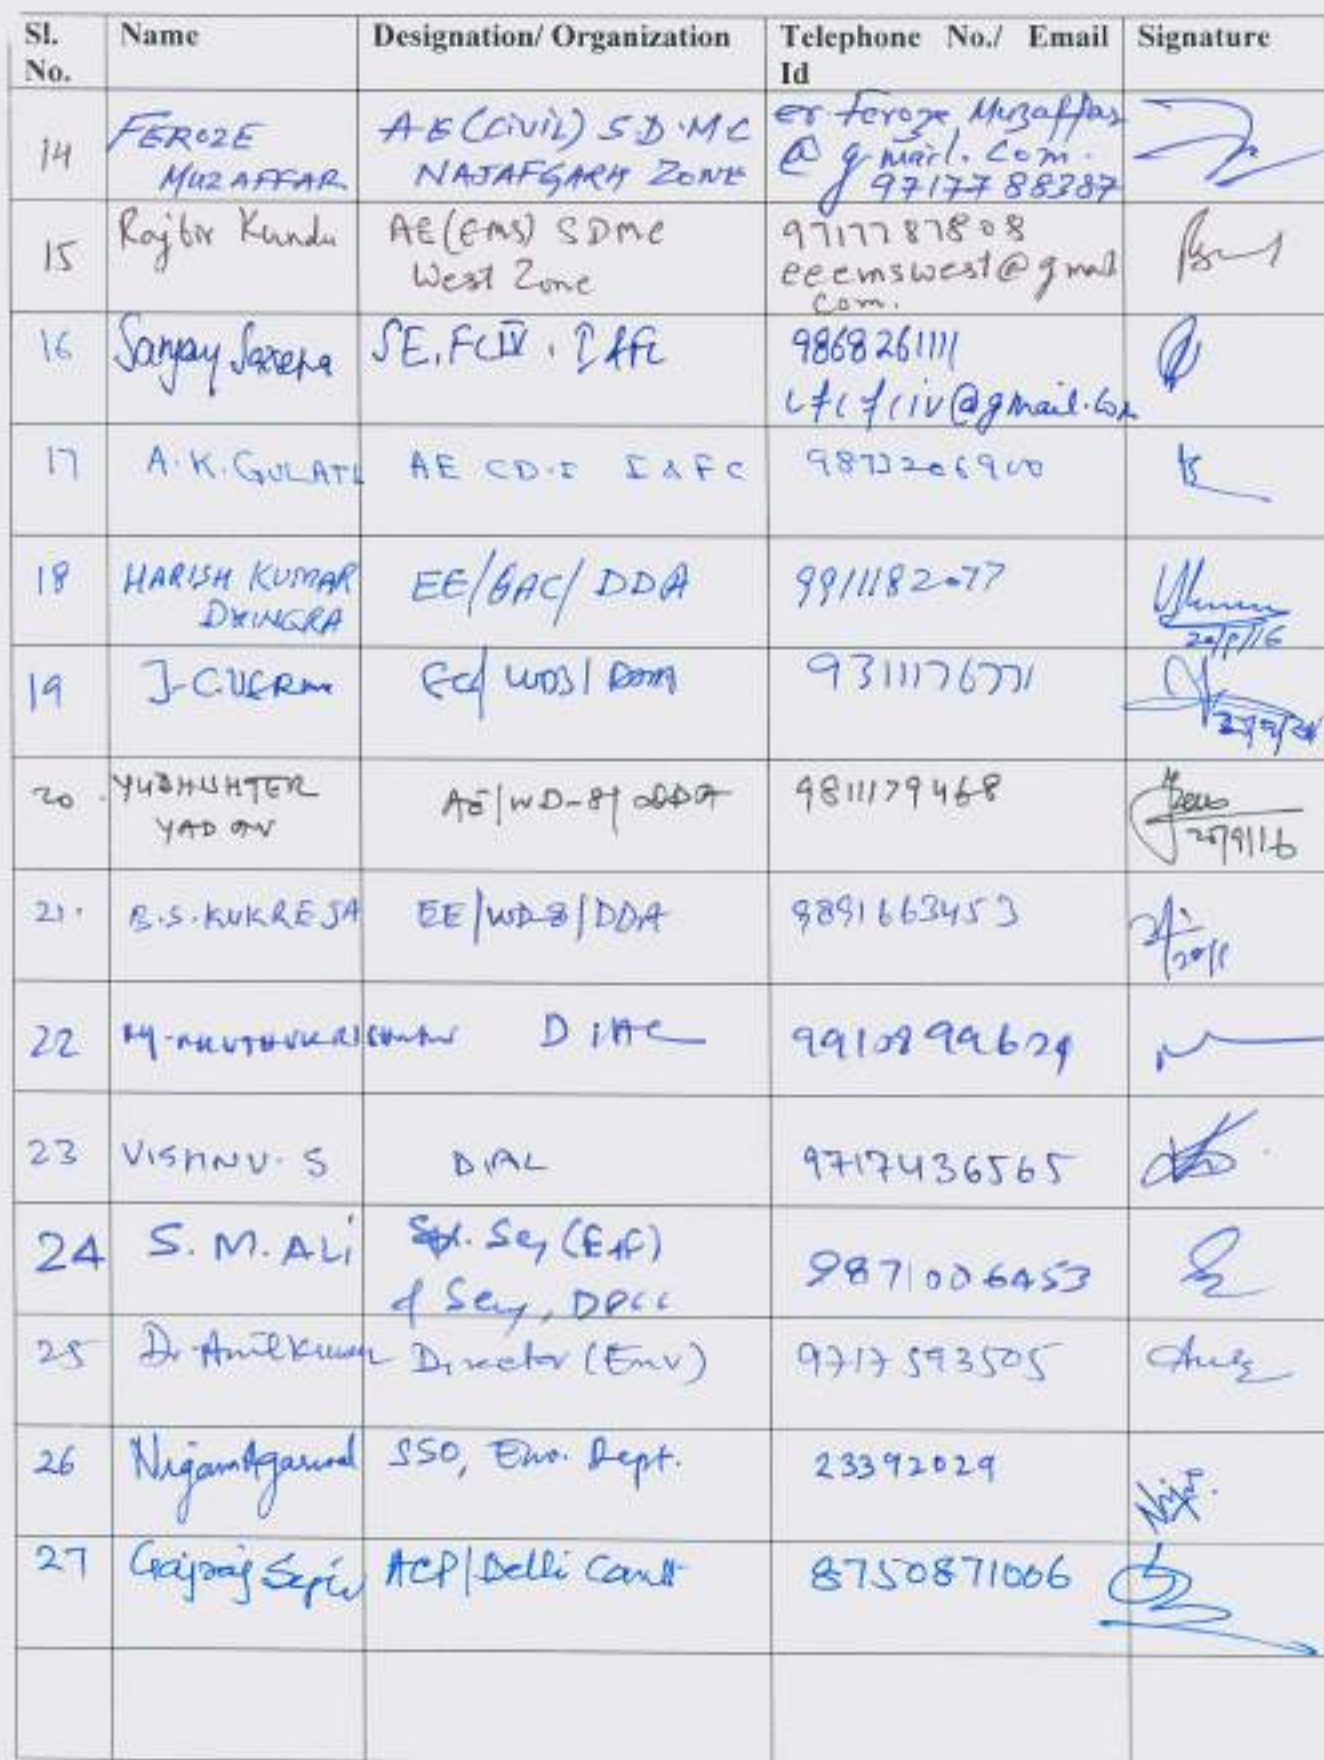 Sl. No. Name Designation/ Organization Telephone No./ Email Id Signature
14 FEROZE MUZAFFAR AE (CIVIL) S D.MC NAJAFGARH ZONE er feroze Muzaffar @ gmail. com. 9717788387
15 Rajbir Kundu AE (EMS) SDMC West Zone 9717787808 eeemswest@gmail com.
16 Sanjay Saxena SE, FCIV. I&FC 9868261111 @gmail.com
17 A.K. GULATI AE CD.I I & FC
18 HARISH KUMAR DHINGRA EE/ / DDA 9911182077 20/9/16
19 J-C VERMA 9311176771
20. YUDHISHTER YADAV AE/WD-8/ DDA 9811179468 20/9/16
21. B.S. KUKREJA EE/WD-8/DDA 9891663453 20/9
22 M. MUTHUKRISHNAN
23 VISHNU. S DIAL 9717436565
24 S. M. ALI Spl. Secy (E&F) & Secy, DPCC 9871006453
25 Dr Anil Kumar Director (Env) 9717593505
26 Nigam Agarwal SSO, Env. Dept. 23392029
27 Gajraj Singh ACP/Delhi Cantt 8750871006